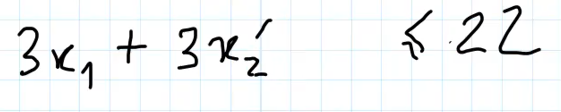 3x₁ + 3x₂′ ⩽ 22